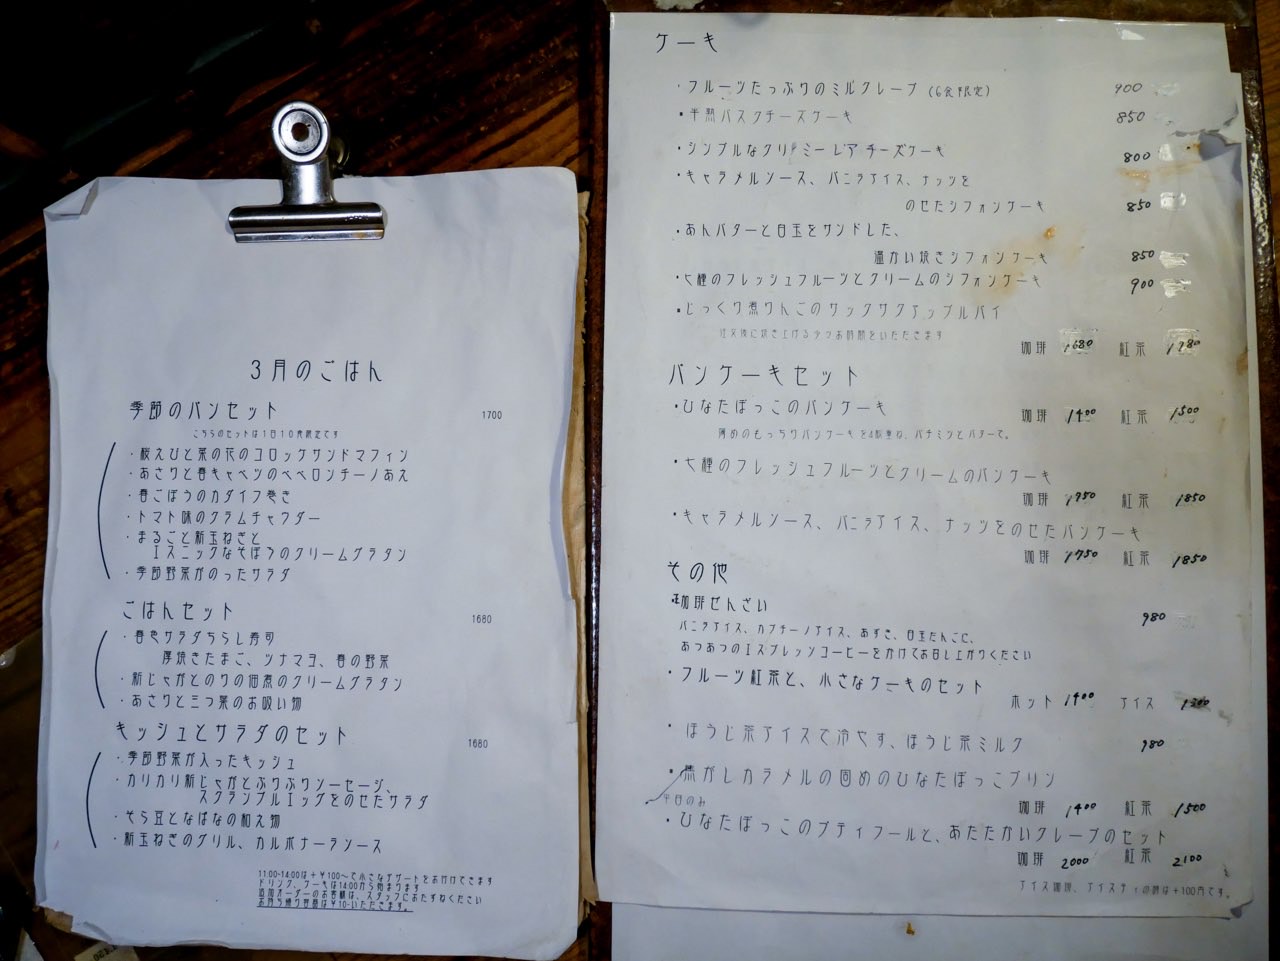 3月のごはん
季節のパンセット 1700
こちらのセットは1日10食限定です
・桜えびと菜の花のコロッケサンドマフィン
・あさりと春キャベツのペペロンチーノあえ
・春ごぼうのカダイフ巻き
・トマト味のクラムチャウダー
・まるごと新玉ねぎと
エスニックなそぼろのクリームグラタン
・季節野菜がのったサラダ
ごはんセット 1680
・春色サラダちらし寿司
厚焼きたまご、ツナマヨ、春の野菜
・新じゃがとのりの佃煮のクリームグラタン
・あさりと三つ葉のお吸い物
キッシュとサラダのセット 1680
・季節野菜が入ったキッシュ
・カリカリ新じゃがとぷりぷりソーセージ、
スクランブルエッグをのせたサラダ
・そら豆となばなの和え物
・新玉ねぎのグリル、カルボナーラソース
11:00-14:00は+¥100〜で小さなデザートをお付けできます
ドリンク、ケーキは14:00から始まります
追加オーダーのお客様は、スタッフにおたずねください
お持ち帰り容器は¥10-いただきます。
ケーキ
・フルーツたっぷりのミルクレープ (6食限定) 900
・半熟バスクチーズケーキ 850
・シンプルなクリーミーレアチーズケーキ 800
・キャラメルソース、バニラアイス、ナッツを
のせたシフォンケーキ 850
・あんバターと白玉をサンドした、
温かい焼きシフォンケーキ 850
・七種のフレッシュフルーツとクリームのシフォンケーキ 900
・じっくり煮りんごのサックサクアップルパイ
注文後に焼き上げる少々お時間をいただきます
珈琲 1680 紅茶 1780
パンケーキセット
・ひなたぼっこのパンケーキ 珈琲 1400 紅茶 1500
薄めのもっちりパンケーキを4枚重ね、ハチミツとバターで。
・七種のフレッシュフルーツとクリームのパンケーキ
珈琲 1750 紅茶 1850
・キャラメルソース、バニラアイス、ナッツをのせたパンケーキ
珈琲 1750 紅茶 1850
その他
・珈琲ぜんざい 980
バニラアイス、カプチーノアイス、あずき、白玉だんごに、
あつあつのエスプレッソコーヒーをかけてお召し上がりください
・フルーツ紅茶と、小さなケーキのセット
ホット 1400 アイス 1500
・ほうじ茶アイスで冷やす、ほうじ茶ミルク 980
・焦がしカラメルの固めのひなたぼっこプリン
平日のみ 珈琲 1400 紅茶 1500
・ひなたぼっこのプティフールと、あたたかいクレープのセット
珈琲 2000 紅茶 2100
アイス珈琲、アイスティの時は+100円です。